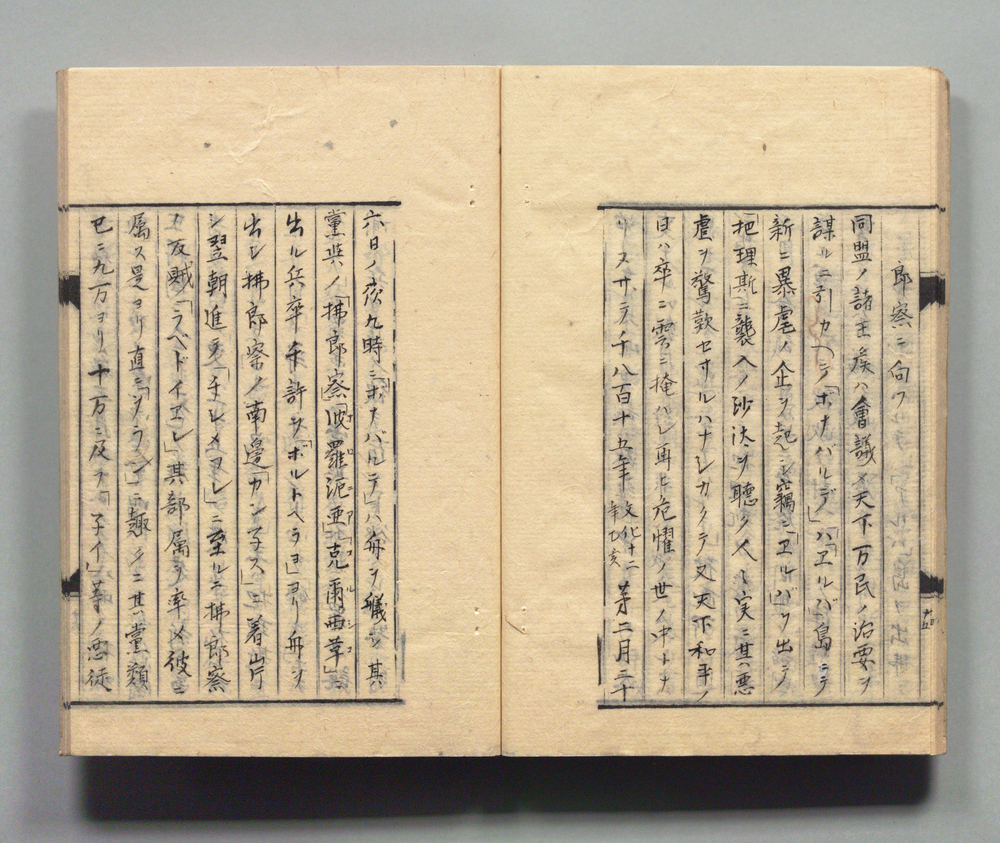 郎察ニ向フ
同盟ノ諸王矦ハ會議〆天下万民ノ治要ヲ
謀ルニ引カヘテ「ボナパルテ」ハ「ヱルバ」島ニテ
新ニ暴虐ノ企ヲ起シ竊ニ「ヱルバ」ヲ出テ
「把理斯ニ襲入ノ沙汰ヲ聽ク人々実ニ其悪
虐ヲ驚歎セサルハナシカクテ又天下和平ノ
日ハ卒ニ雲ニ掩ハレ再ヒ危懼ノ世ノ中トナ
リヌサテ千八百十五年 文化十二年乙亥 第二月二十
六日ノ夜九時ニ「ボナパルテ」ハ舟ヲ艤シ其
黨與ノ「拂郎察」「波羅泥亜」「克爾西革」ニ
出ル兵卒千許ヲ「ボルトヘラヨ」ヨリ舟ヲ
出シ拂郎察ノ南邊「カン子ス」ニ着岸
シ翌朝進テ
ニ至ルニ拂郎察
ノ反賊「ラベドイエレ」其部属ヲ率メ彼ニ
属ス是ヨリ直ニ
ニ趣クニ其黨類
已ニ九万ヨリ十万ニ及フ「子イ」等ノ悪徒